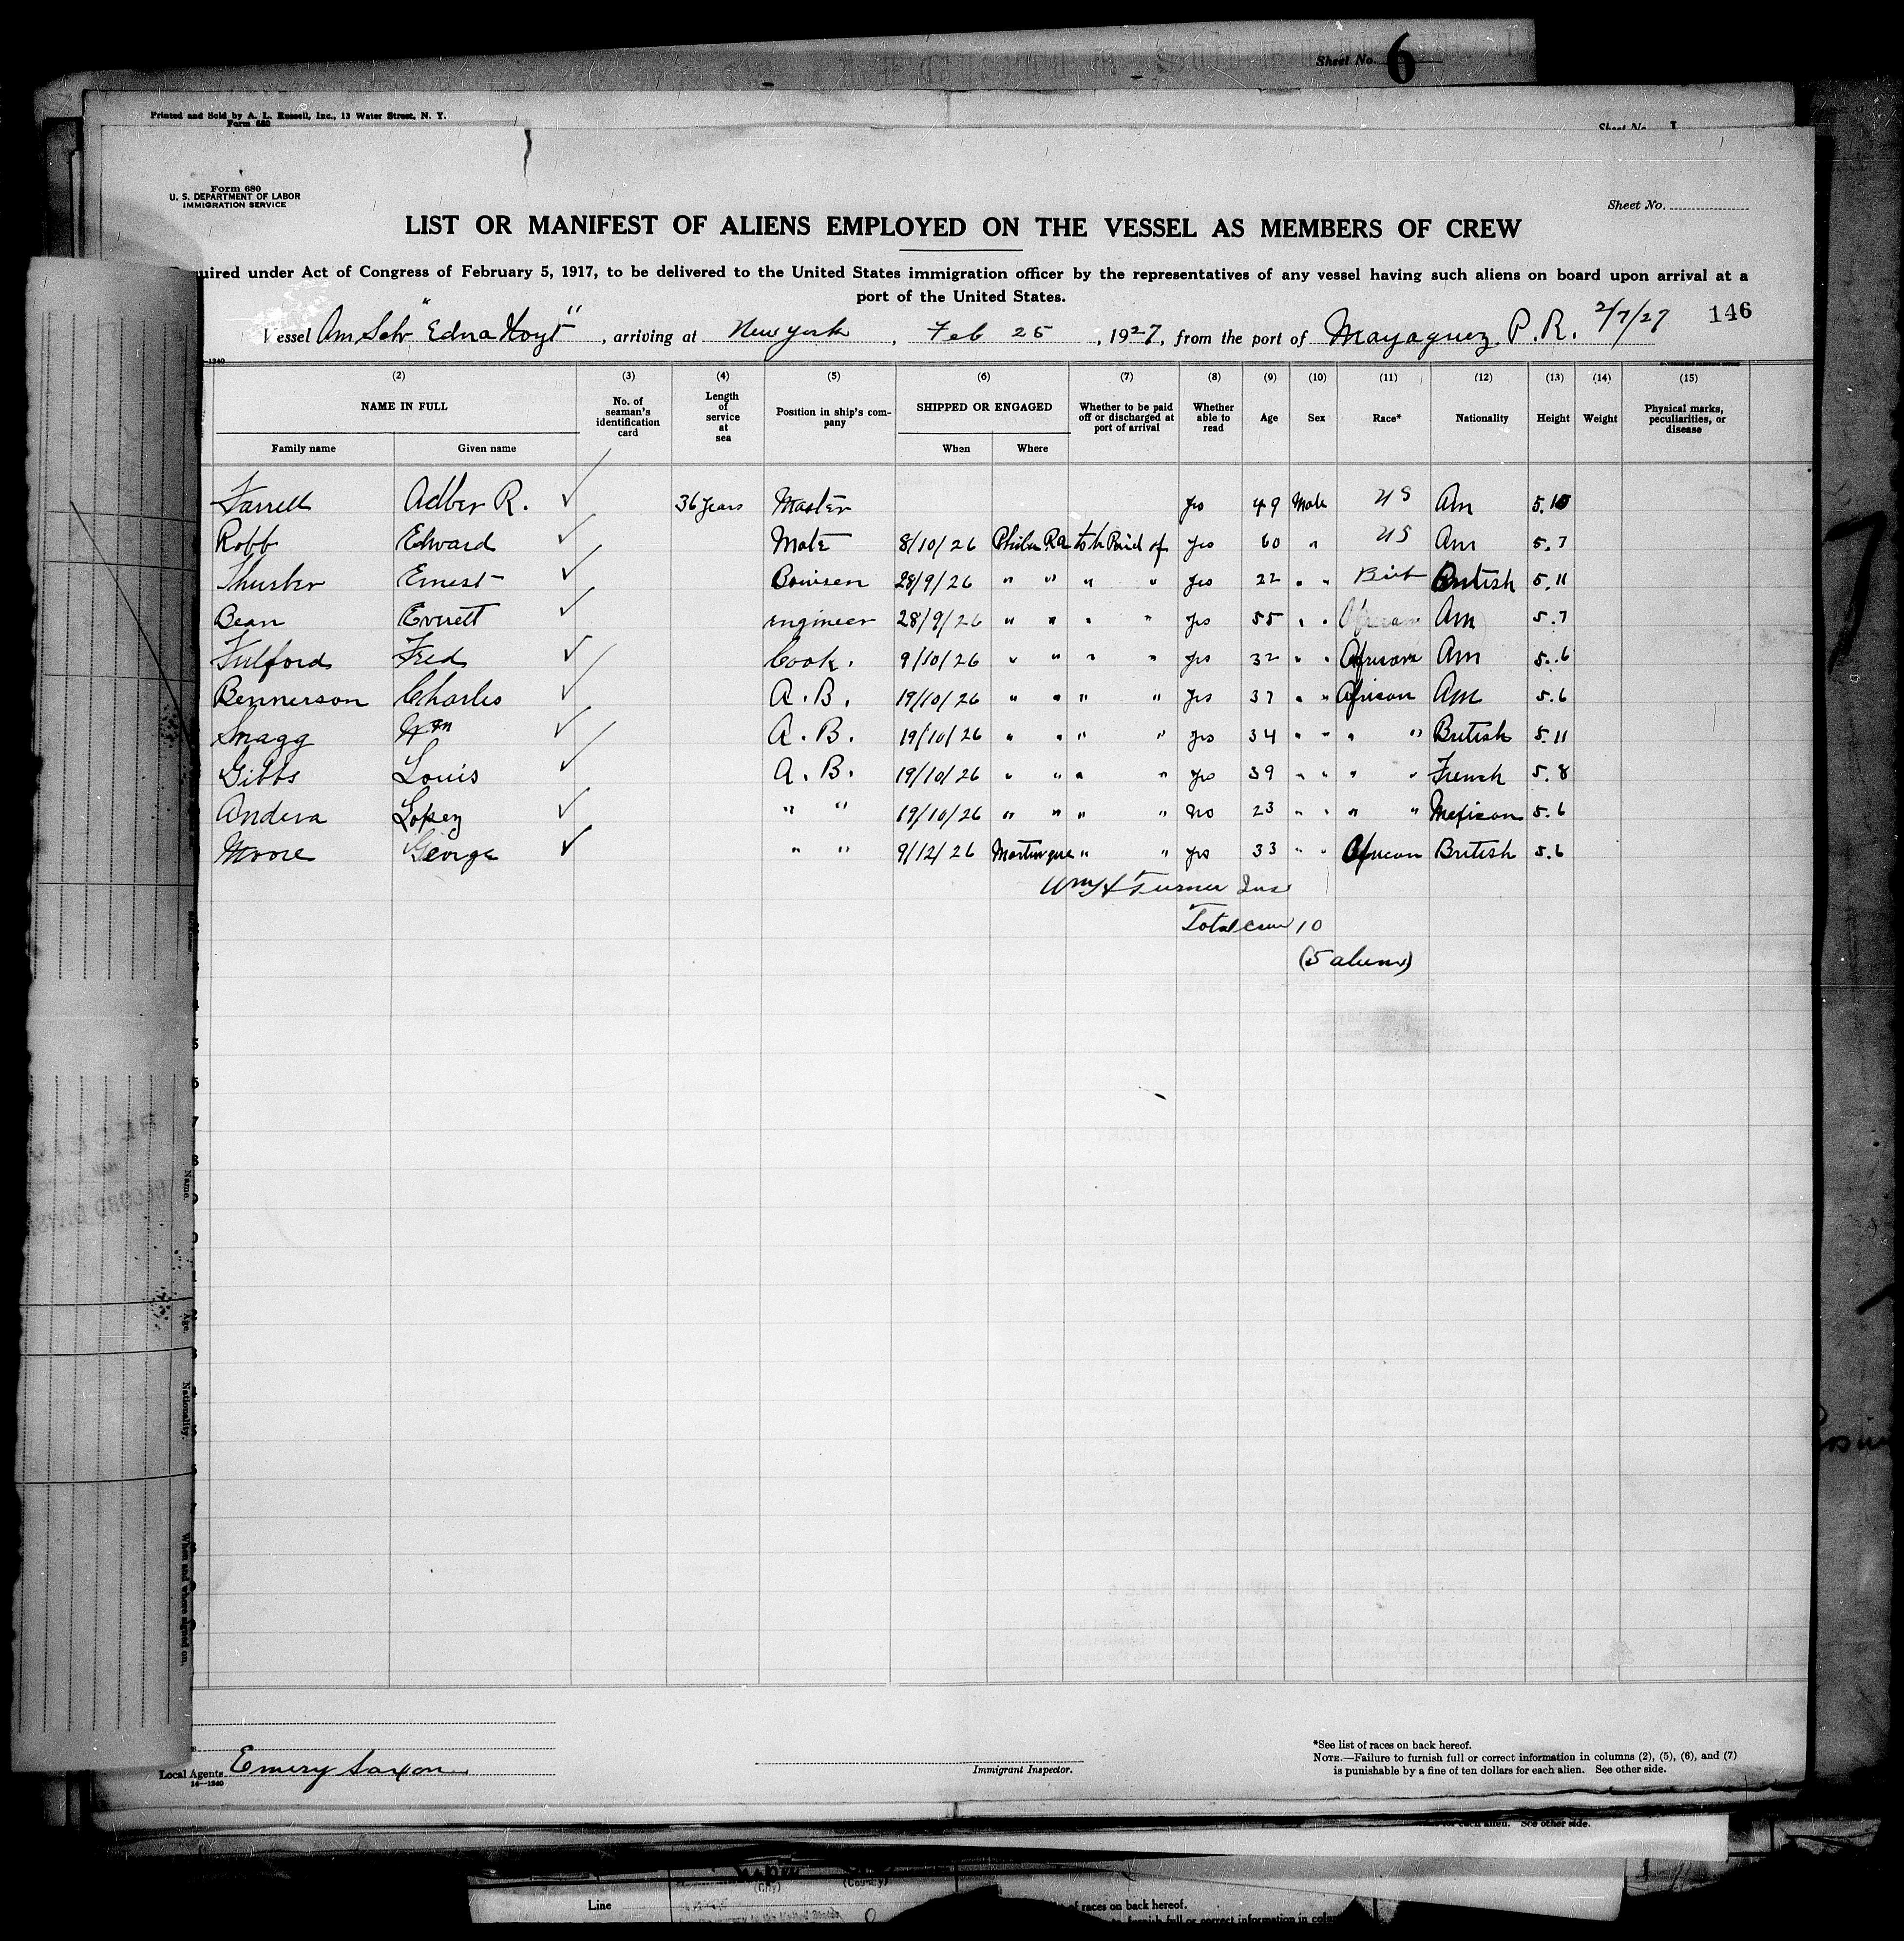 Sheet No. 6
Printed and Sold by A. L. Russell, Inc., 13 Water Street, N. Y.
Form 680
Sheet No. 1
Form 680
U. S. DEPARTMENT OF LABOR
IMMIGRATION SERVICE
Sheet No.
LIST OR MANIFEST OF ALIENS EMPLOYED ON THE VESSEL AS MEMBERS OF CREW
uired under Act of Congress of February 5, 1917, to be delivered to the United States immigration officer by the representatives of any vessel having such aliens on board upon arrival at a
port of the United States.
Vessel Am Schr "Edna Hoyt", arriving at New York, Feb 25, 1927, from the port of Mayaguez, P. R. 2/7/27 146
(2) (3) (4) (5) (6) (7) (8) (9) (10) (11) (12) (13) (14) (15)
NAME IN FULL No. of seaman's identification card Length of service at sea Position in ship's company SHIPPED OR ENGAGED Whether to be paid off or discharged at port of arrival Whether able to read Age Sex Race* Nationality Height Weight Physical marks, peculiarities, or disease
Family name Given name When Where
Farrell Adber R. ✓ 36 years Master yes 49 Male US Am 5.10
Robb Edward ✓ Mate 8/10/26 Phila Pa to be Paid of yes 60 " US Am 5.7
Thurber Ernest ✓ 28/9/26 " " " " yes 22 " " Brit British 5.11
Bean Everett ✓ engineer 28/9/26 " " " " yes 55 " " African Am 5.7
Fulford Fred ✓ Cook. 9/10/26 " " " " yes 32 " " African Am 5.6
Bennerson Charles ✓ A. B. 19/10/26 " " " " yes 37 " " African Am 5.6
Snagg Wm ✓ A. B. 19/10/26 " " " " yes 34 " " " " British 5.11
Gibbs Louis ✓ A. B. 19/10/26 " " " " yes 39 " " " " French 5.8
Andera Lopez ✓ " " 19/10/26 " " " " no 23 " " " " Mexican 5.6
Moore George ✓ " " 9/12/26 Martinque " " yes 33 " " African British 5.6
Wm H Turner Ins
Total crew 10
(5 aliens)
Name.
Age.
Nationality.
When and where signed on.
Local Agents Emery Saxon
14—1240
Immigrant Inspector.
*See list of races on back hereof.
NOTE.—Failure to furnish full or correct information in columns (2), (5), (6), and (7)
is punishable by a fine of ten dollars for each alien. See other side.
for each alien. See other side.
(City) (Country)
Line
of races on back hereof.
to furnish full or correct information in colu